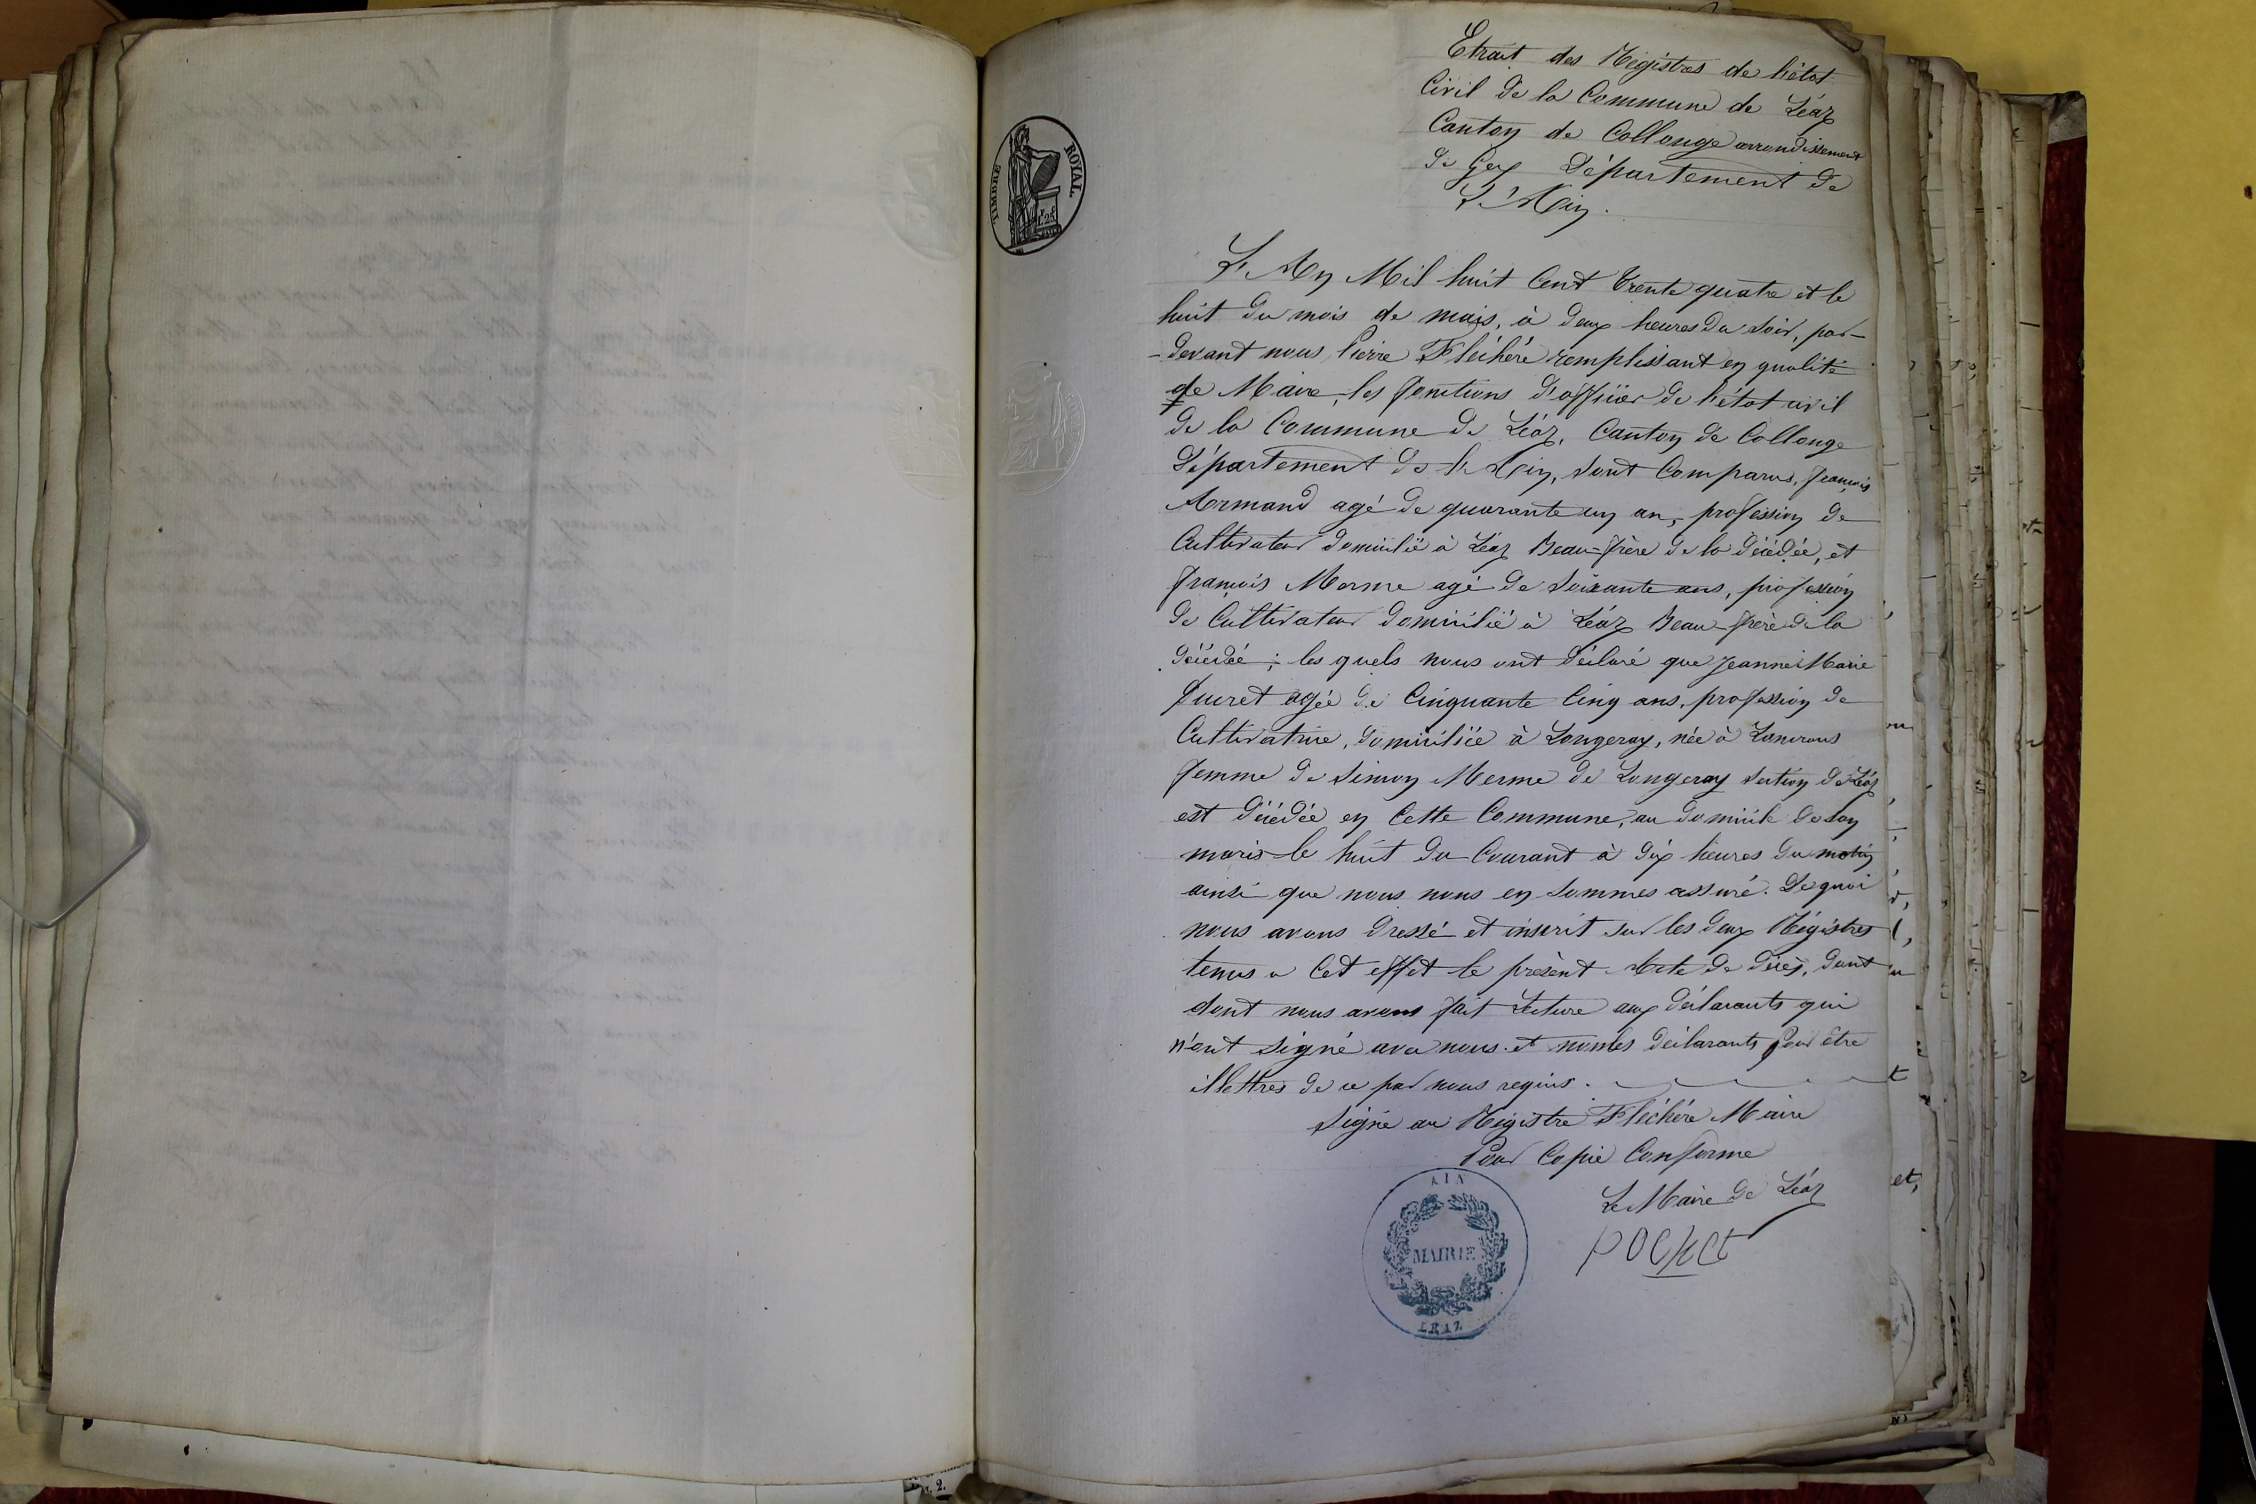 Etrait des Régistres de l'état
Civil de la Commune de Léaz
Canton de Collonge arrondissement
de Gex Département de
L'Ain.
TIMBRE ROYAL
L'An Mil huit Cent trente quatre et le
huit du mois de mais, à deux heures du soir, par-
-devant nous Pierre Fléchére remplissant en qualité
de Maire, les fonctions d'officier de l'état civil
de la Commune de Léaz, Canton de Collonge
Département de l'Ain, sont Comparus, françois
Armand agé de quarante un an, profession de
Cultivateur domicilié à Léaz Beau-frère de la décédée, et
françois Merme agé de soixante ans, profession
de Cultivateur domicilié à Léaz Beau-frère de la
décédée; les quels nous ont déclaré que Jeanne Marie
Ducret agée de Cinquante Cinq ans, profession de
Cultivatrice, domiciliée à Longeray, née à Lancrans
femme de Simon Merme de Longeray section de Léaz
est décédée en Cette Commune, au domicile de son
maris le huit du Courant à dix heures du matin
ainsi que nous nous en sommes assuré. De quoi
nous avons dressé et inscrit sur les deux Régistres
tenus a Cet effet le présent Acte de décès, dont
dont nous avons fait lecture aux déclarants qui
n'ont signé avec nous et les déclarants pour être
illettres de ce par nous requis.
Signé au Régistre Fléchére Maire
Pour Copie Conforme
Le Maire de Léaz
POCHET
AIN
MAIRIE
LEAZ